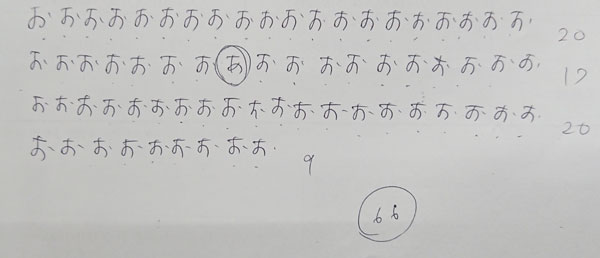 おおおおおおおおおおおおおおおおおおおお 20
おおおおおおおあおおおおおおおおおお 17
おおおおおおおおおおおおおおおおおおおお 20
おおおおおおおおお 9
66